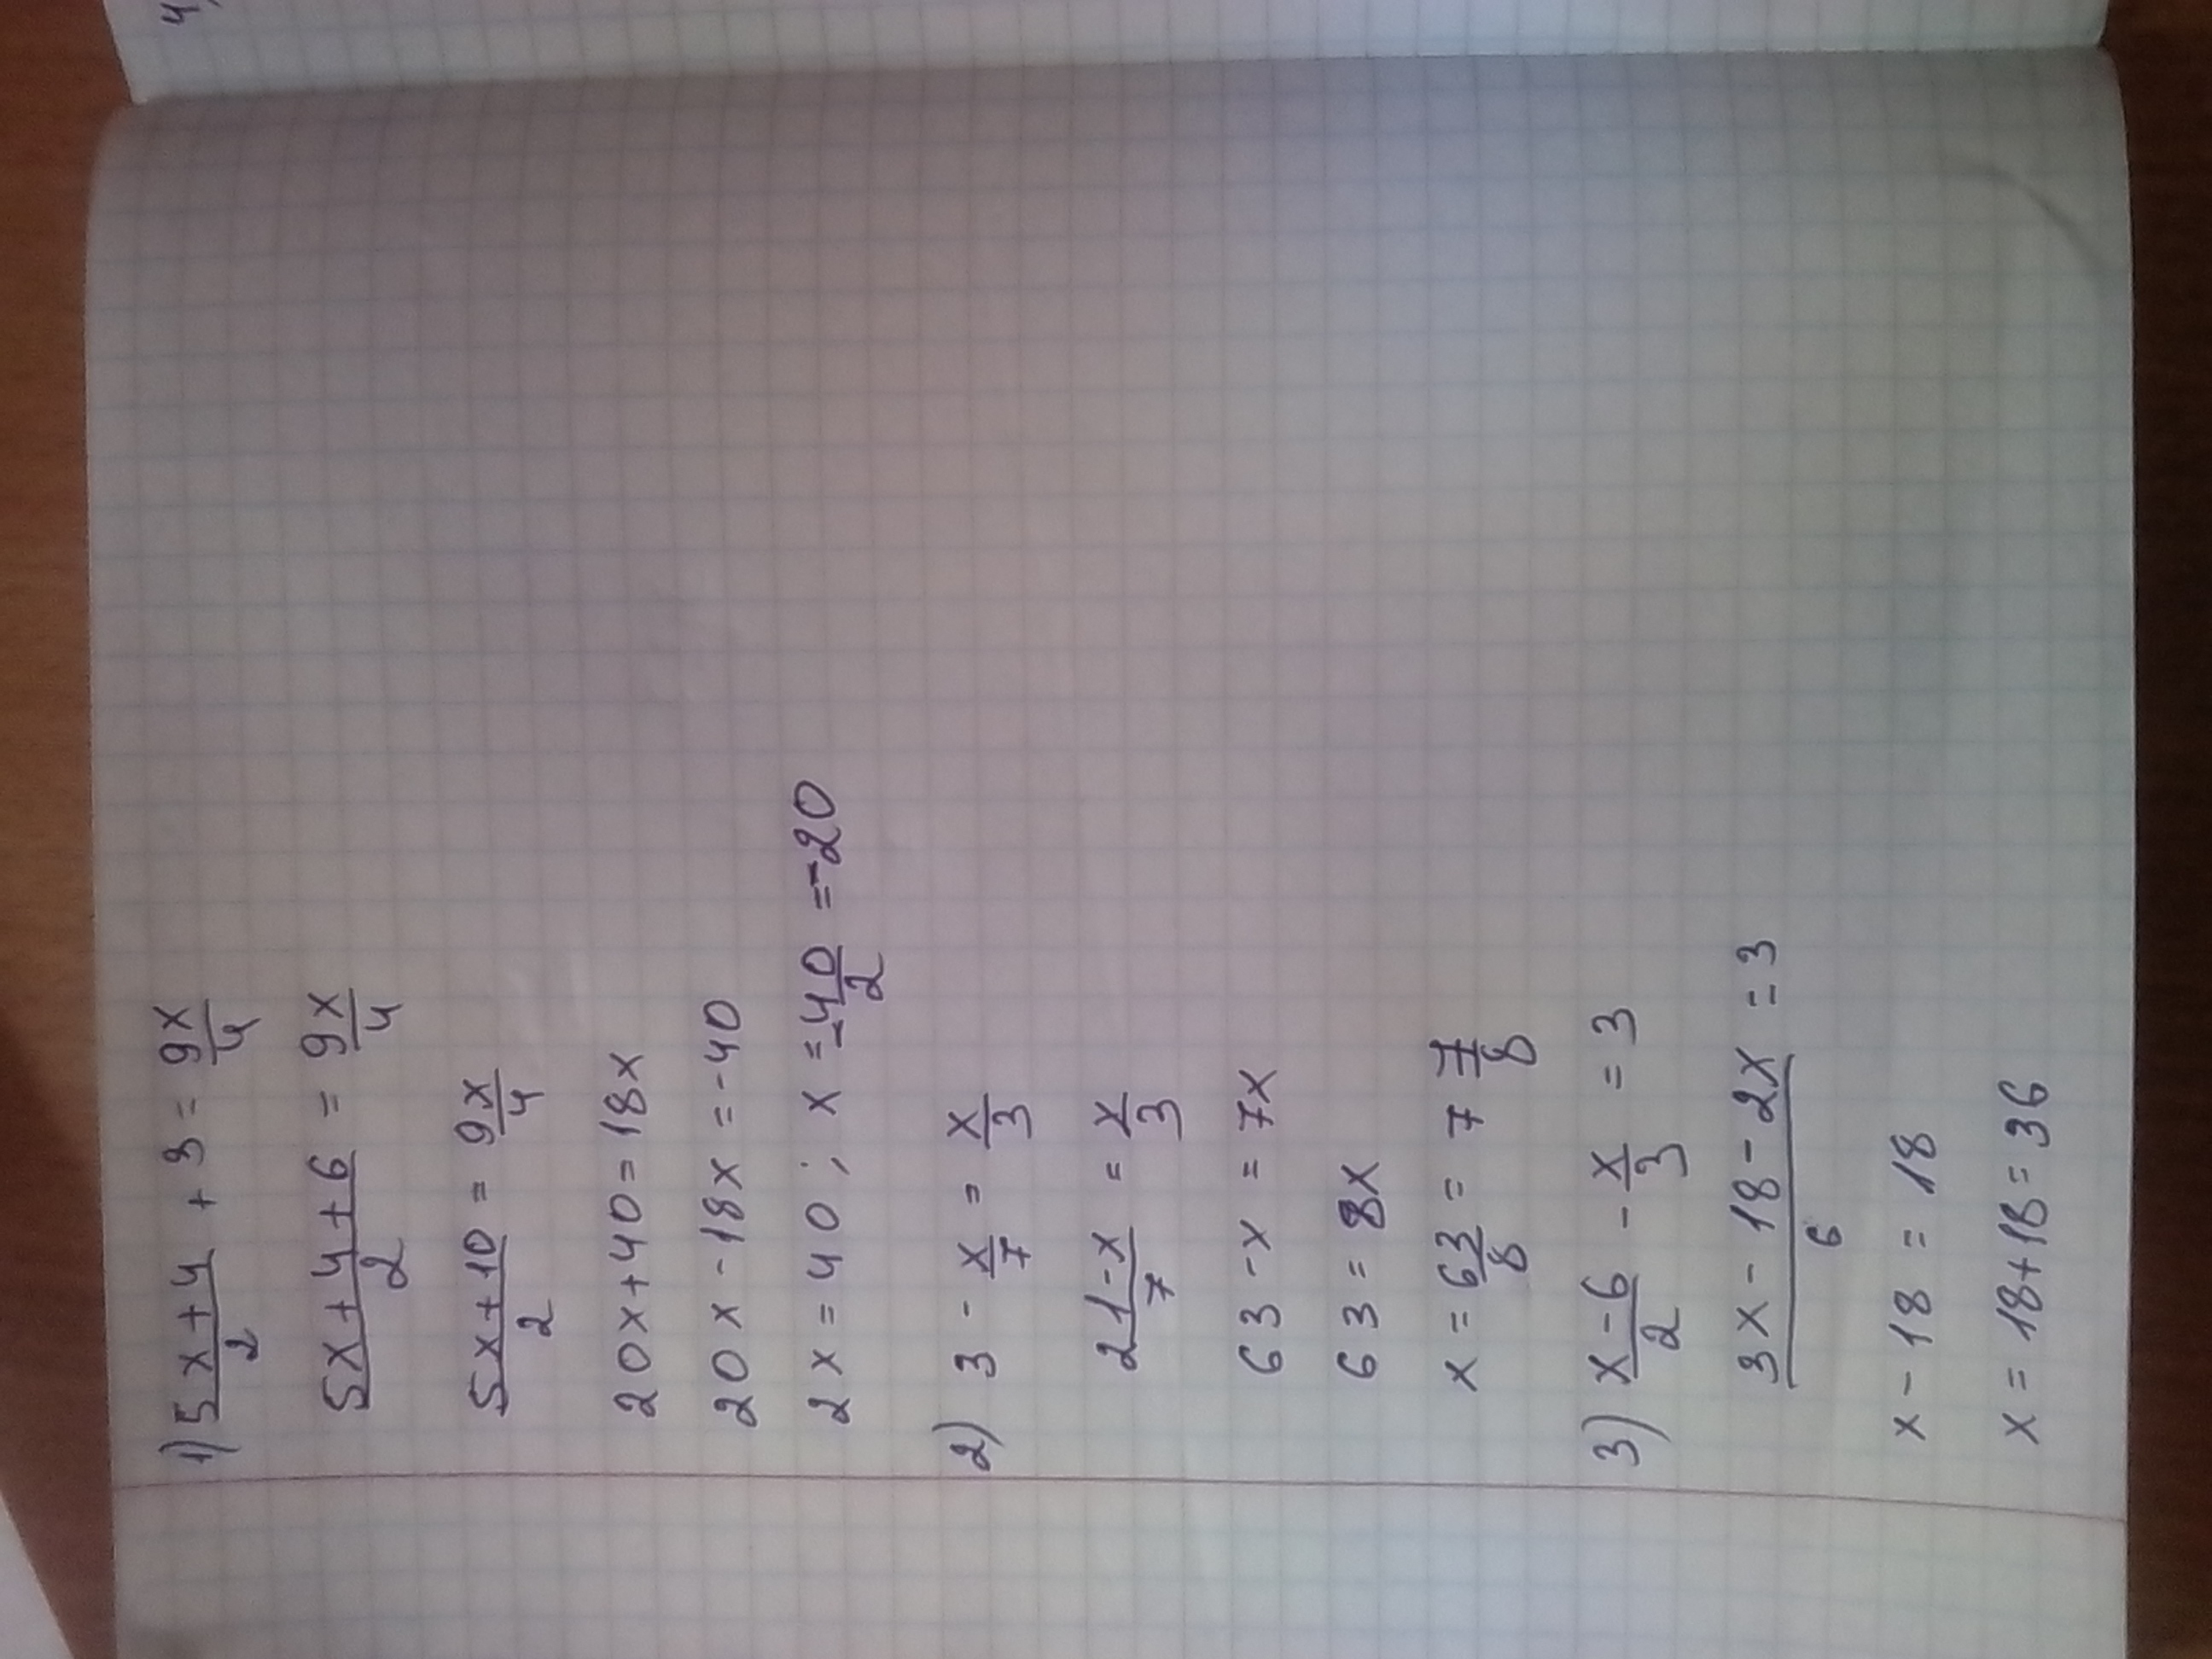 1) (5x+4)/2 + 3 = 9x/4
(5x+4+6)/2 = 9x/4
(5x+10)/2 = 9x/4
20x+40=18x
20x-18x=-40
2x=40; x=-40/2=-20
2) 3 - x/7 = x/3
(21-x)/7 = x/3
63-x=7x
63=8x
x=63/8=7 7/8
3) (x-6)/2 - x/3 = 3
(3x-18-2x)/6 = 3
x-18=18
x=18+18=36